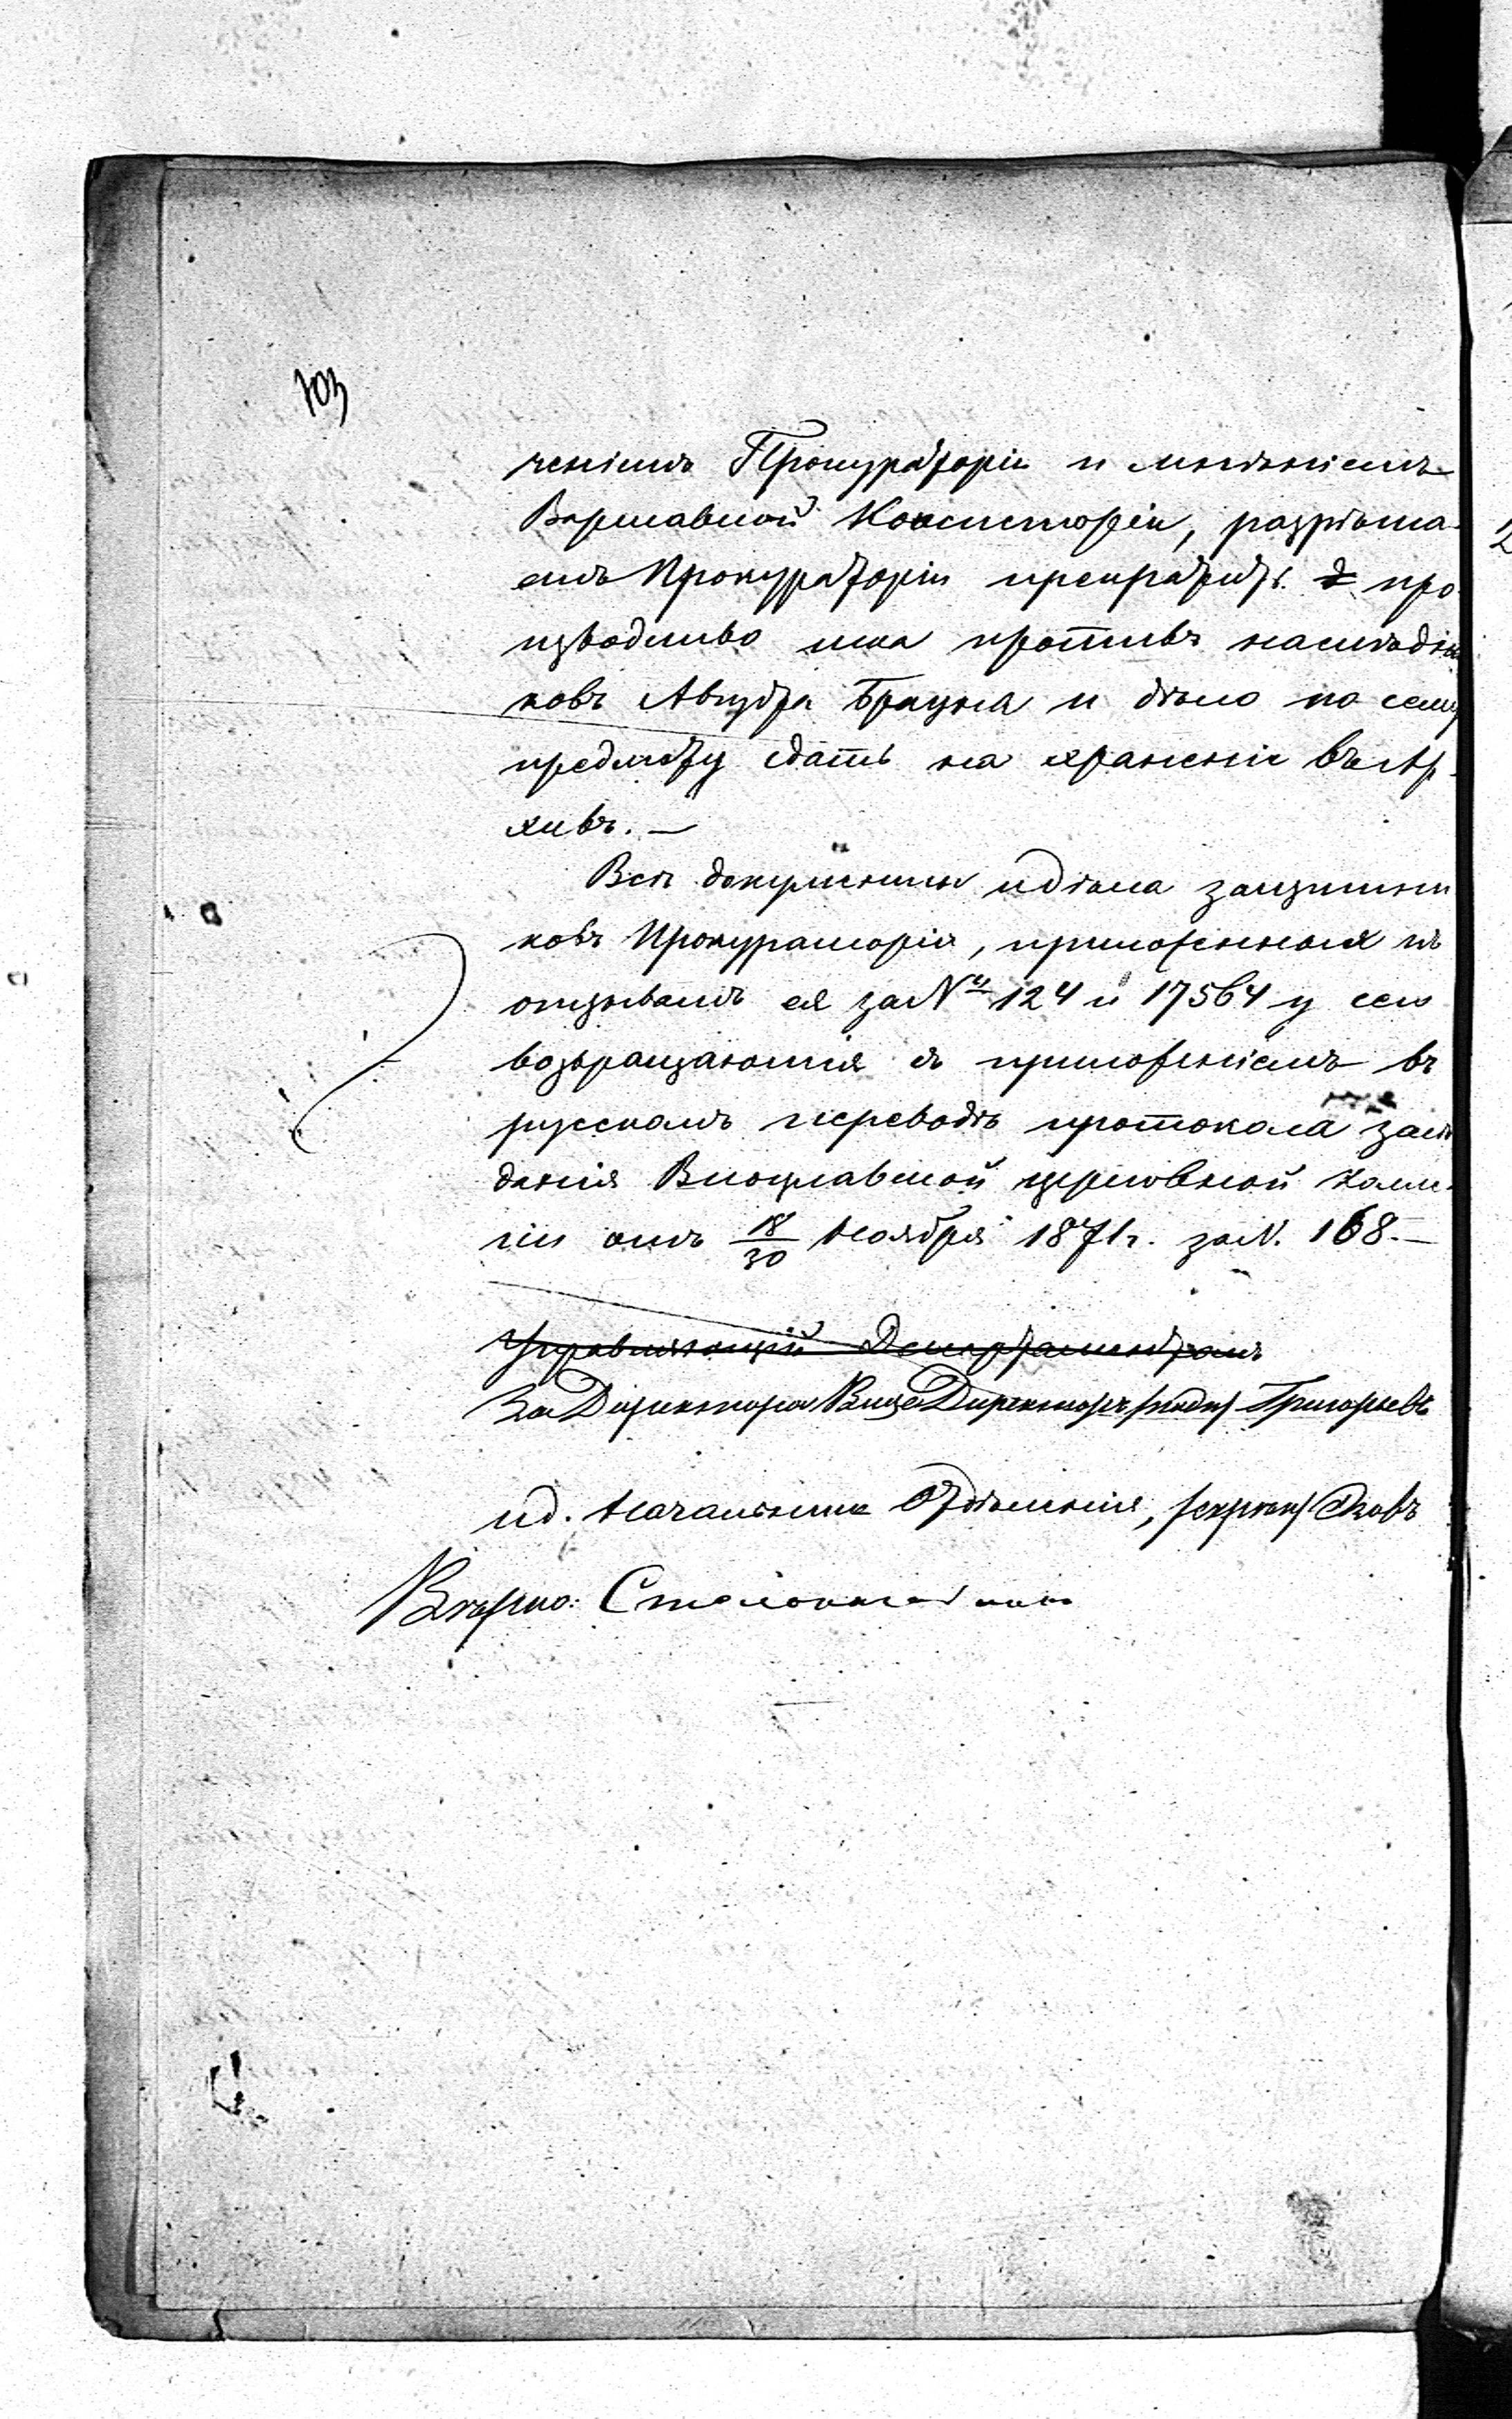 103
ченіемъ Прокураторіи и мнѣніемъ
Варшавской Консисторіи, разрѣша-
етъ Прокураторіи прекратить про-
изводство иска противъ наслѣдни
ковъ Августа Брауна и дѣло по сему
предмету сдать на храненіе въ Ар-
хивъ. —
Всѣ документы и дѣла защитни
ковъ Прокураторіи, приложенныя къ
отзывамъ ея за № 124 и 17564 у сего
возвращаются съ приложеніемъ въ
русскомъ переводѣ протокола засѣ
данія Влоцлавской церковной Колле-
гіи отъ 18/30 Ноября 1871 г. за N. 168. —
Управляющій Департаментомъ
За Директора Вице Директоръ /подп/ Григорьевъ
ид. Начальника Отдѣленія,
Вѣрно: